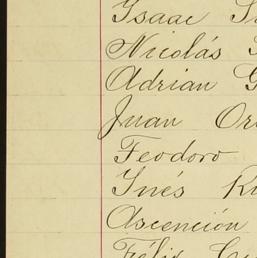 Isaac
Nicolás
Adrian G
Juan Or
Teodoro
Inés Ru
Ascención
Félix